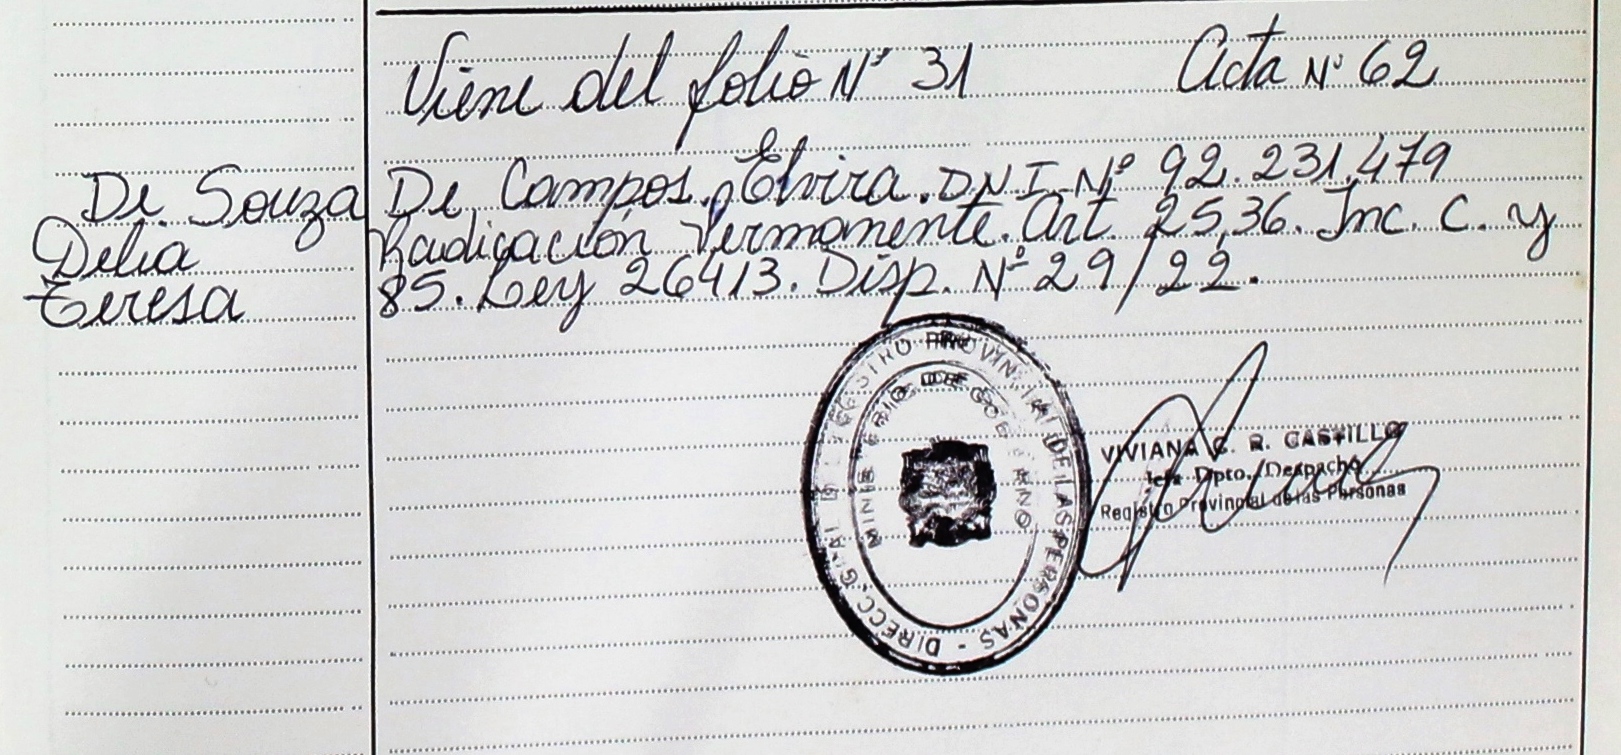 Viene del folio Nº 31 Acta Nº 62
De Souza
Delia
Teresa
De Campos. Elvira. DNI. Nº 92.231.479
Radicación Permanente. Art. 25,36. Inc. C. y
85. Ley 26413. Disp. Nº 29/22.
DIRECC. GRAL DEL REGISTRO PROVINCIAL DE LAS PERSONAS -
MINISTERIO DE GOBIERNO
VIVIANA G. R. CASTILLO
Jefa Dpto. Despacho
Registro Provincial de las Personas